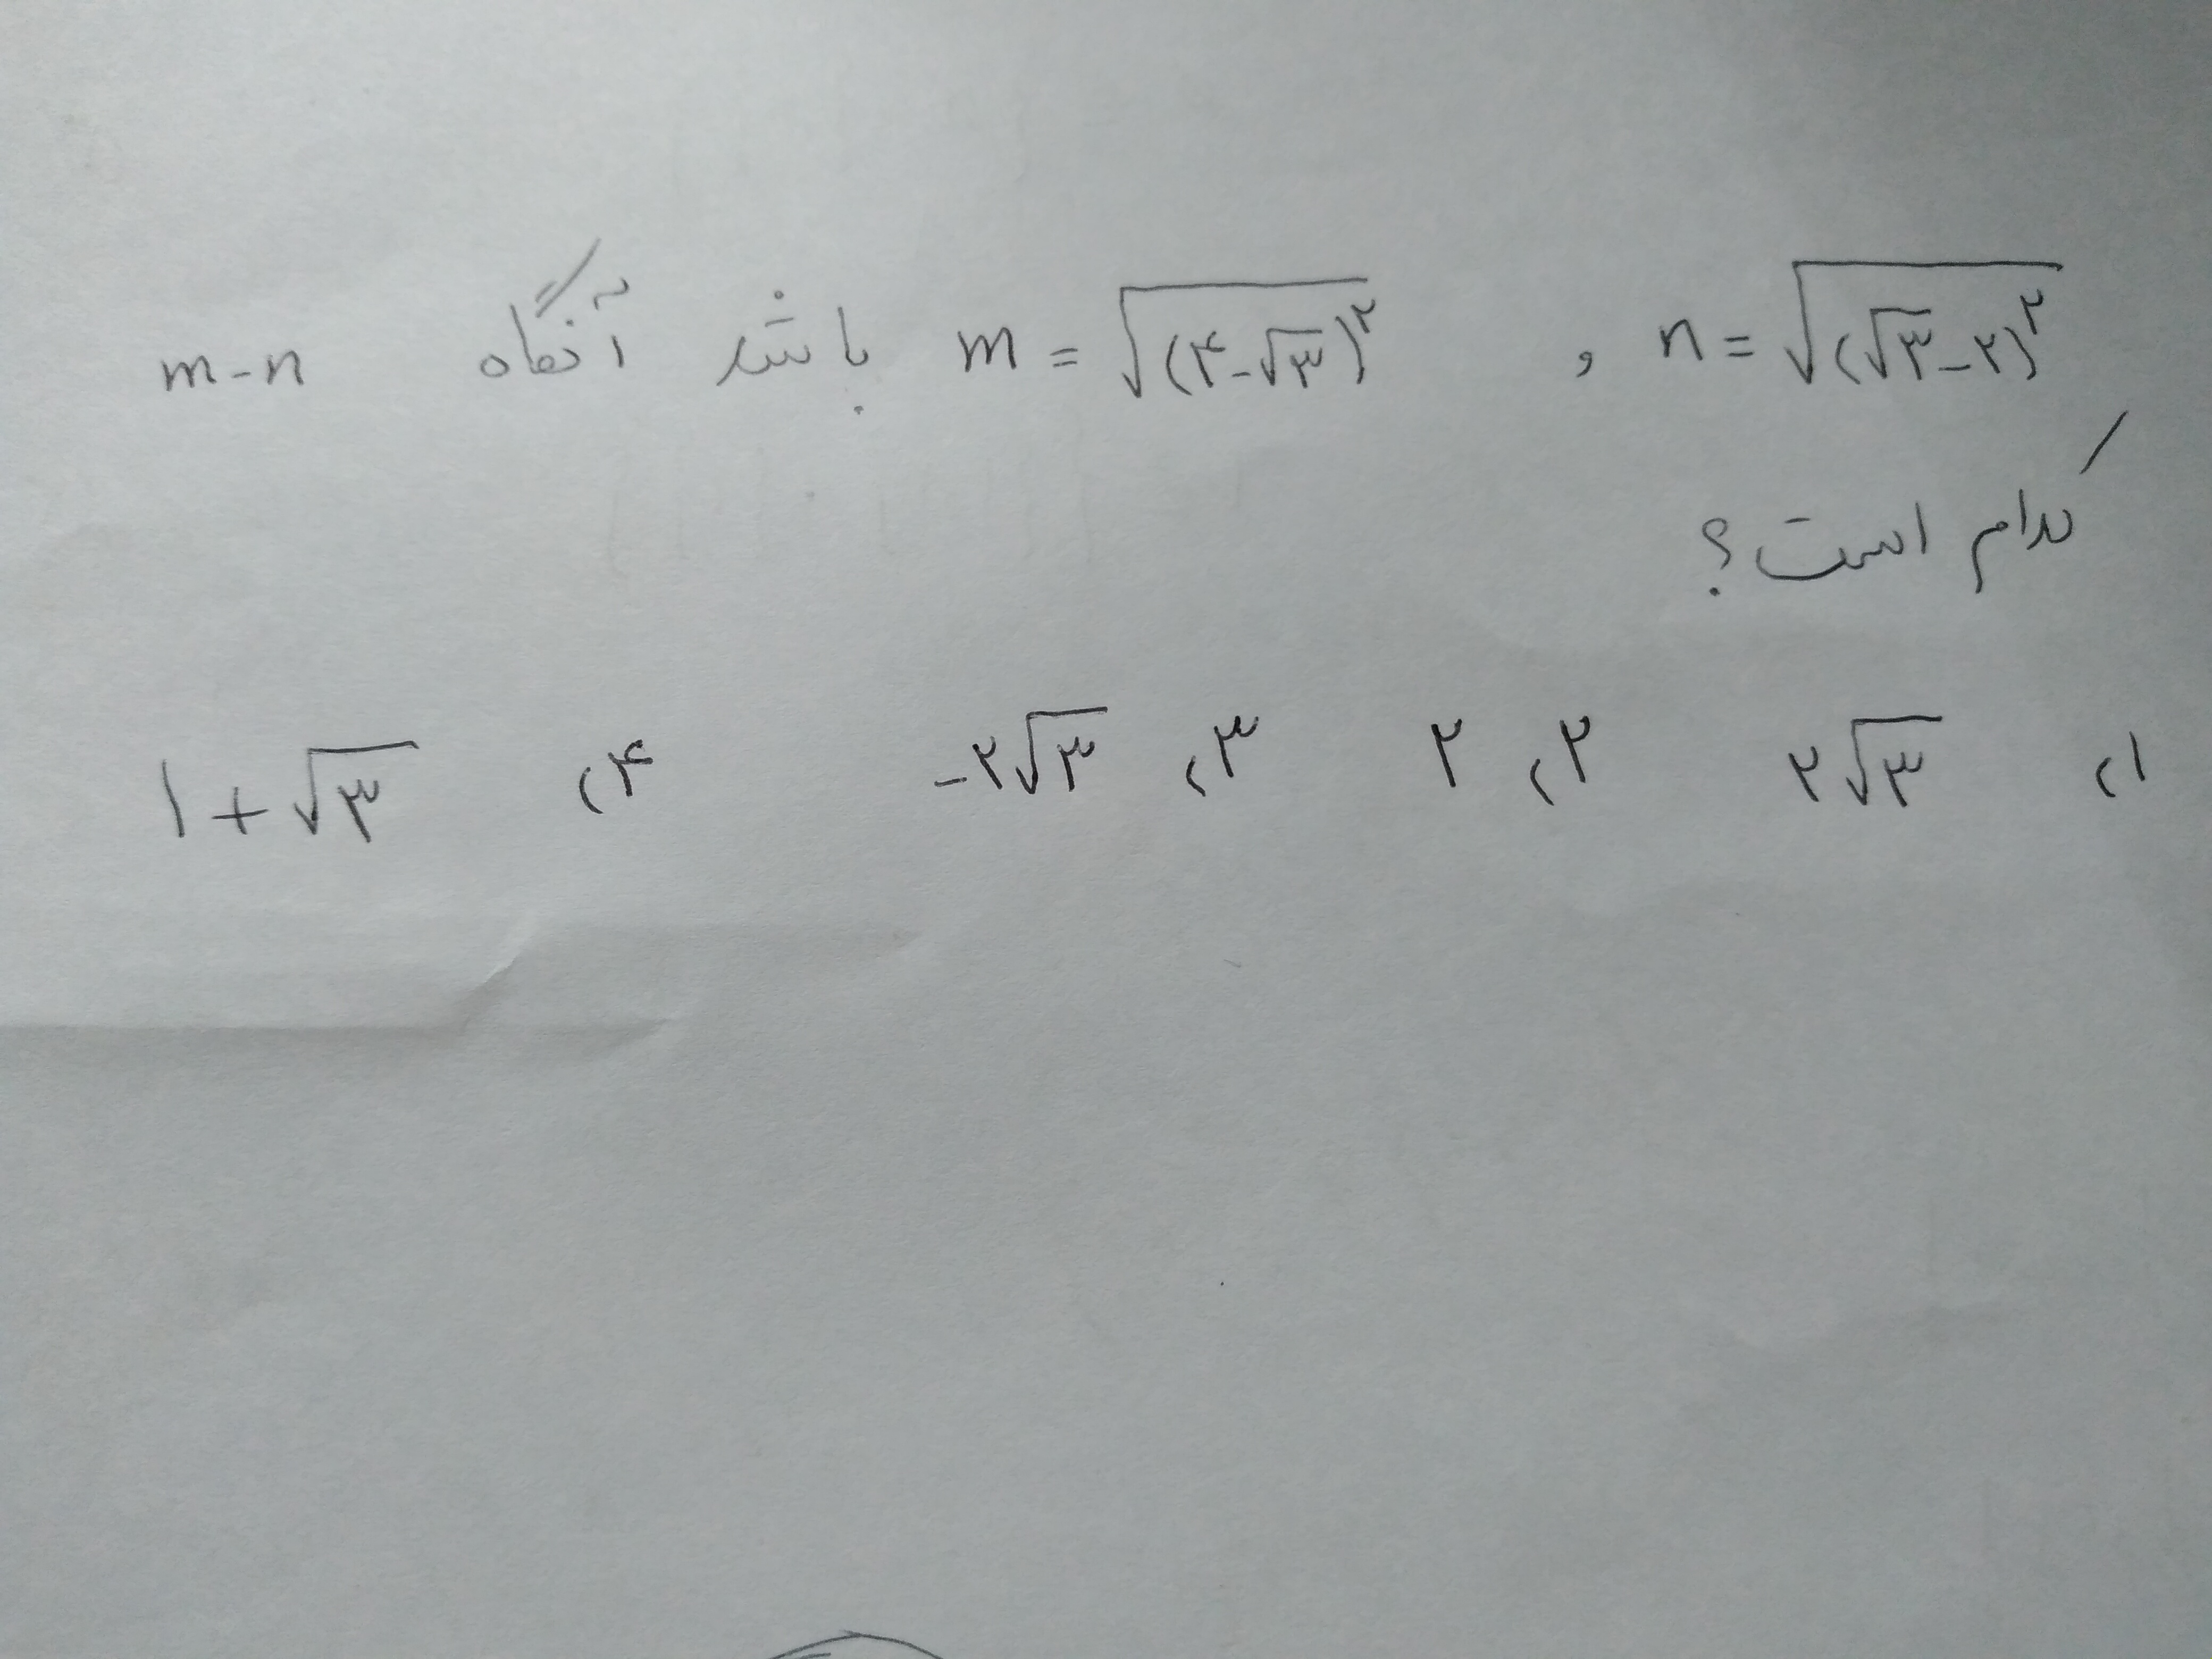 n = √(√۳ - ۲)^۲ , m = √(۴ - √۳)^۲ باشد آنگاه m - n
کدام است؟
۱) ۲√۳ ۲) ۲ ۳) -۲√۳ ۴) ۱ + √۳